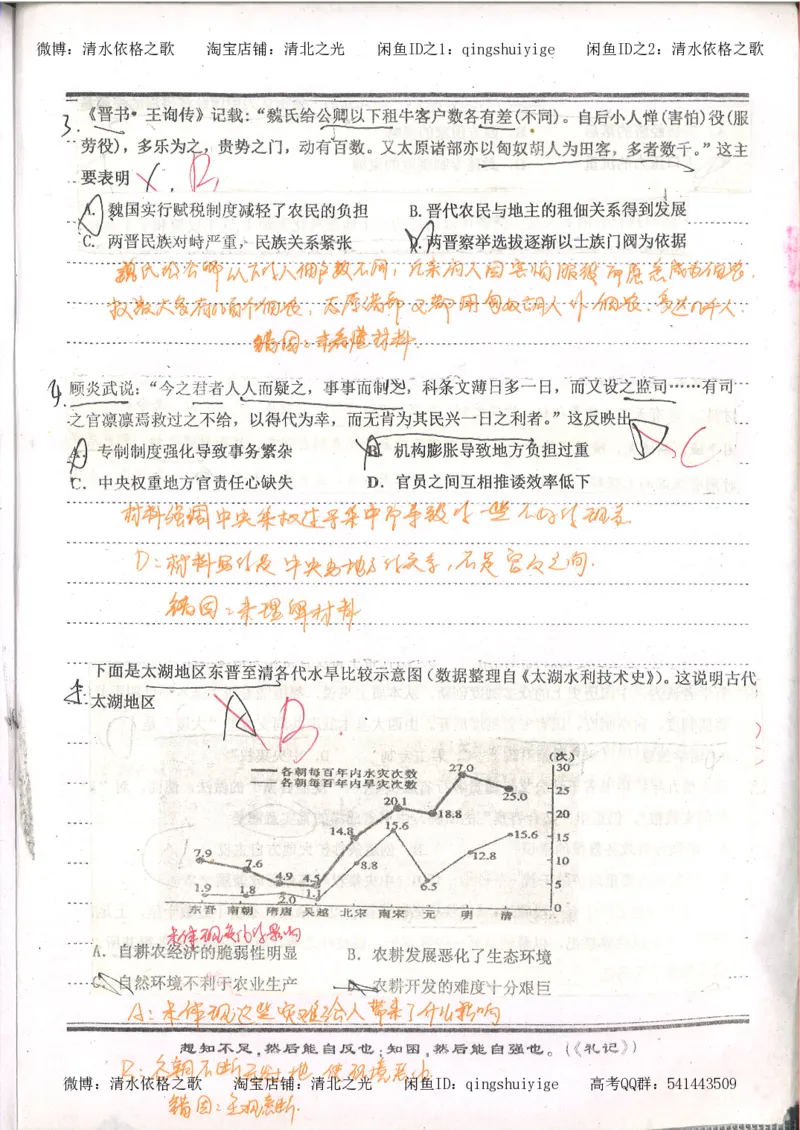 微博：清水依格之歌 淘宝店铺：清北之光 闲鱼ID之1：qingshuiyige 闲鱼ID之2：清水依格之歌
3. 《晋书•王询传》记载：“魏氏给公卿以下租牛客户数各有差(不同)。自后小人惮(害怕)役(服
劳役)，多乐为之，贵势之门，动有百数。又太原诸部亦以匈奴胡人为田客，多者数千。”这主
要表明 B
A. 魏国实行赋税制度减轻了农民的负担 B. 晋代农民与地主的租佃关系得到发展
C. 两晋民族对峙严重，民族关系紧张 D. 两晋察举选拔逐渐以士族门阀为依据
魏氏给公卿以下的人佃户数不同，后来的人因害怕服役而愿意成为佃农.
故数大多有的百个佃农，太原诸部又都用匈奴胡人作佃农，多达几千人.
错因：未看懂材料.
4. 顾炎武说：“今之君者人人而疑之，事事而制之，科条文薄日多一日，而又设之监司……有司
之官凛凛焉救过之不给，以得代为幸，而无肯为其民兴一日之利者。”这反映出 D C
A. 专制制度强化导致事务繁杂 B. 机构膨胀导致地方负担过重
C. 中央权重地方官责任心缺失 D. 官员之间互相推诿效率低下
材料强调中央集权过于集中而导致的一些不好的现象
D：材料写的是中央与地方的关系，不是官员之间.
错因：未理解材料
下面是太湖地区东晋至清各代水旱比较示意图(数据整理自《太湖水利技术史》)。这说明古代
太湖地区 A B
各朝每百年内水灾次数
各朝每百年内旱灾次数
(次)
30
25
20
15
10
5
0
7.9 7.6 4.9 4.5 14.8 20.1 18.8 27.0 25.0
1.9 1.8 2.0 1.1 8.8 15.6 6.5 12.8 15.6
东晋 南朝 隋唐 吴越 北宋 南宋 元 明 清
未体现灾的影响
A. 自耕农经济的脆弱性明显 B. 农耕发展恶化了生态环境
C. 自然环境不利于农业生产 D. 农耕开发的难度十分艰巨
A：未体现这些灾难给人带来了什么影响
想知不足，然后能自反也；知困，然后能自强也。(《礼记》)
B：各朝不断
微博：清水依格之歌 淘宝店铺：清北之光 闲鱼ID：qingshuiyige 高考QQ群：541443509
错因：主观臆断.